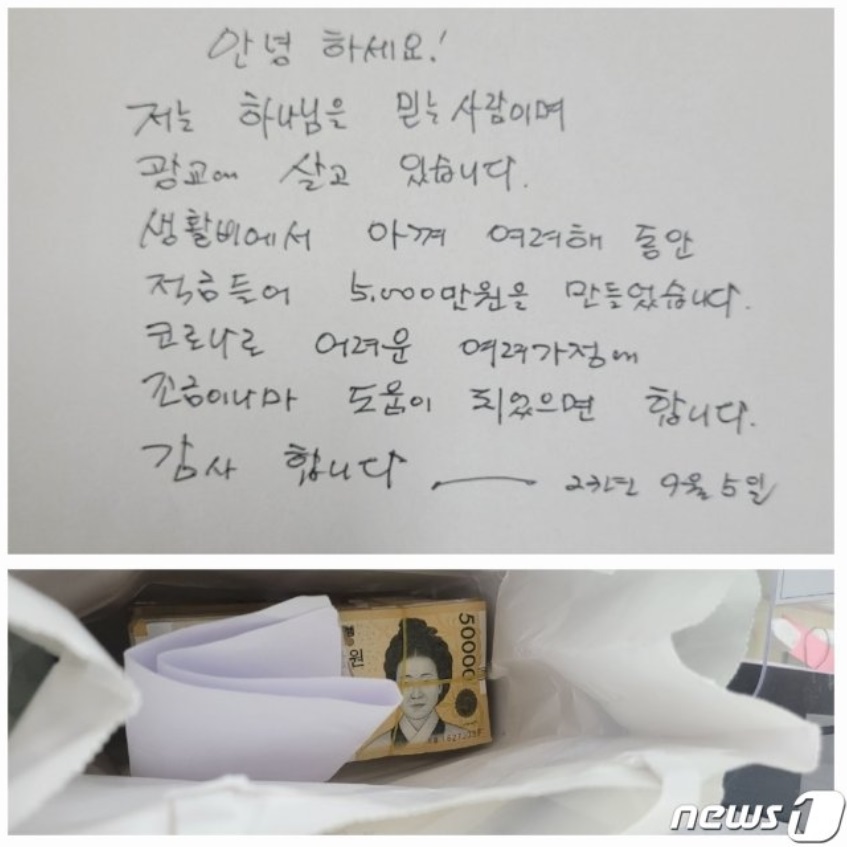 안녕 하세요!
저는 하나님을 믿는 사람이며
광교에 살고 있습니다.
생활비에서 아껴 여러해 동안
적금들어 5,000만원을 만들었습니다.
코로나로 어려운 여러가정에
조금이나마 도움이 되었으면 합니다.
감사 합니다 — 23년 9월 5일
50000
원
news1